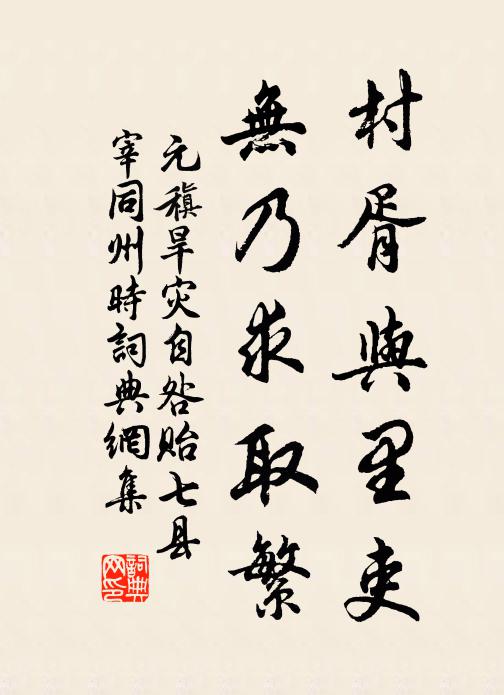 村胥與里吏
無乃求取繁
元稹旱灾自咎贻七县
宰同州時詞典網集
詞典
网印